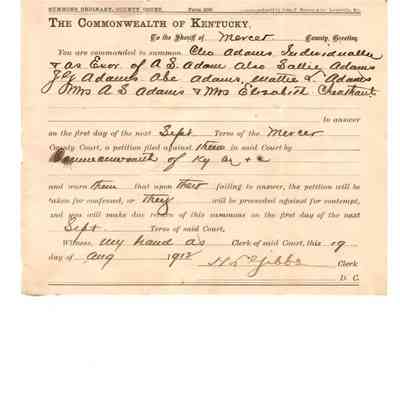 SUMMONS ORDINARY, COUNTY COURT.
THE COMMONWEALTH OF KENTUCKY,
To the Sheriff of Mercer County, Greeting
You are commanded to summon Cleo Adams, Individually
& as Exor. of A. S. Adam Also Sallie Adams
J G Adams Abe Adams, Mattie L. Adams
Mrs A S Adams & Mrs Elizabeth
to answer
on the first day of the next Sept. Term of the Mercer
County Court, a petition filed against them in said Court by
Commonwealth of Ky
and warn them that upon their failing to answer, the petition will be
taken for confessed, or they will be proceeded against for contempt,
and you will make due return of this summons on the first day of the next
Sept. Term of said Court.
Witness, My hand as Clerk of said Court, this 19
day of Aug 1912
Clerk
D. C.